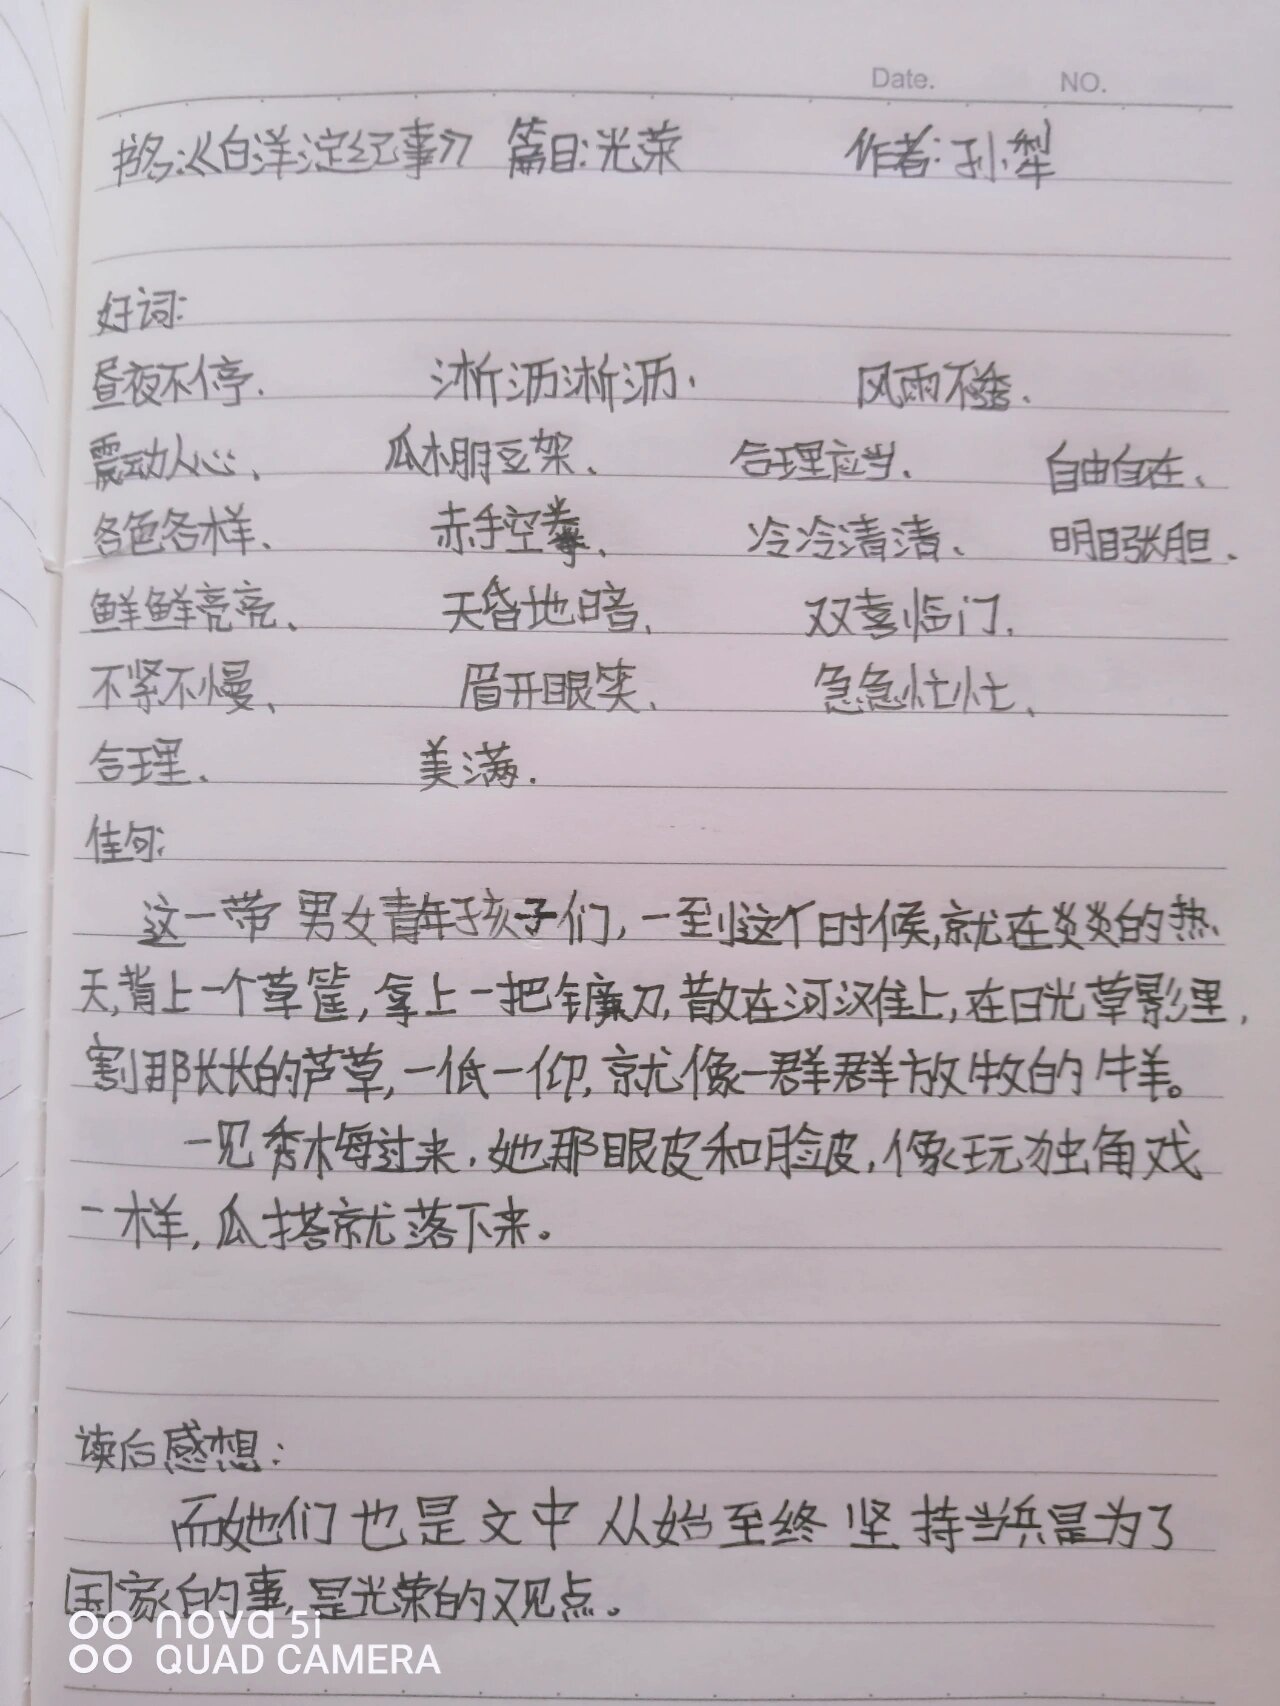 Date. NO.
书名:《白洋淀纪事》 篇目:光荣 作者:孙犁
好词:
昼夜不停. 淅沥淅沥. 风雨不透.
震动人心、 瓜棚豆架、 合理应当、 自由自在、
各色各样、 赤手空拳、 冷冷清清、 明目张胆、
鲜鲜亮亮、 天昏地暗、 双喜临门、
不紧不慢、 眉开眼笑、 急急忙忙、
合理、 美满.
佳句:
这一带男女青年孩子们,一到这个时候,就在炎炎的热
天,背上一个草筐,拿上一把镰刀,散在河滩上,在日光草影里,
割那长长的芦草,一低一仰,就像一群群放牧的牛羊。
一见秀梅过来,她那眼皮和脸皮,像玩独角戏
一样,瓜搭就落下来。
读后感想:
而她们也是文中从始至终坚持当兵是为了
国家的事,是光荣的观点。
nova 5i
QUAD CAMERA